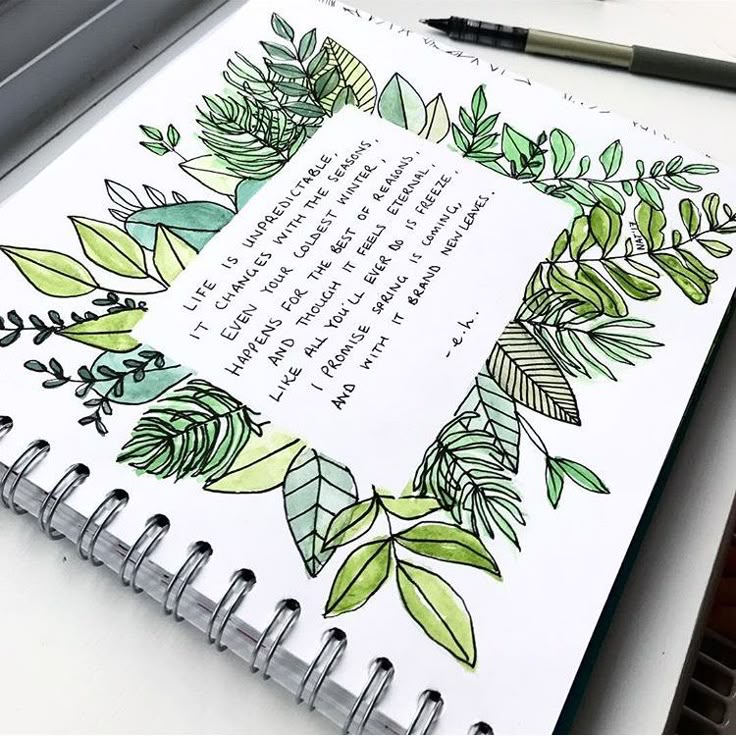 LIFE IS UNPREDICTABLE,
IT CHANGES WITH THE SEASONS,
EVEN YOUR COLDEST WINTER,
HAPPENS FOR THE BEST OF REASONS,
AND THOUGH IT FEELS ETERNAL,
LIKE ALL YOU'LL EVER DO IS FREEZE,
I PROMISE SPRING IS COMING,
AND WITH IT BRAND NEW LEAVES.
-e.h.
NAT '17